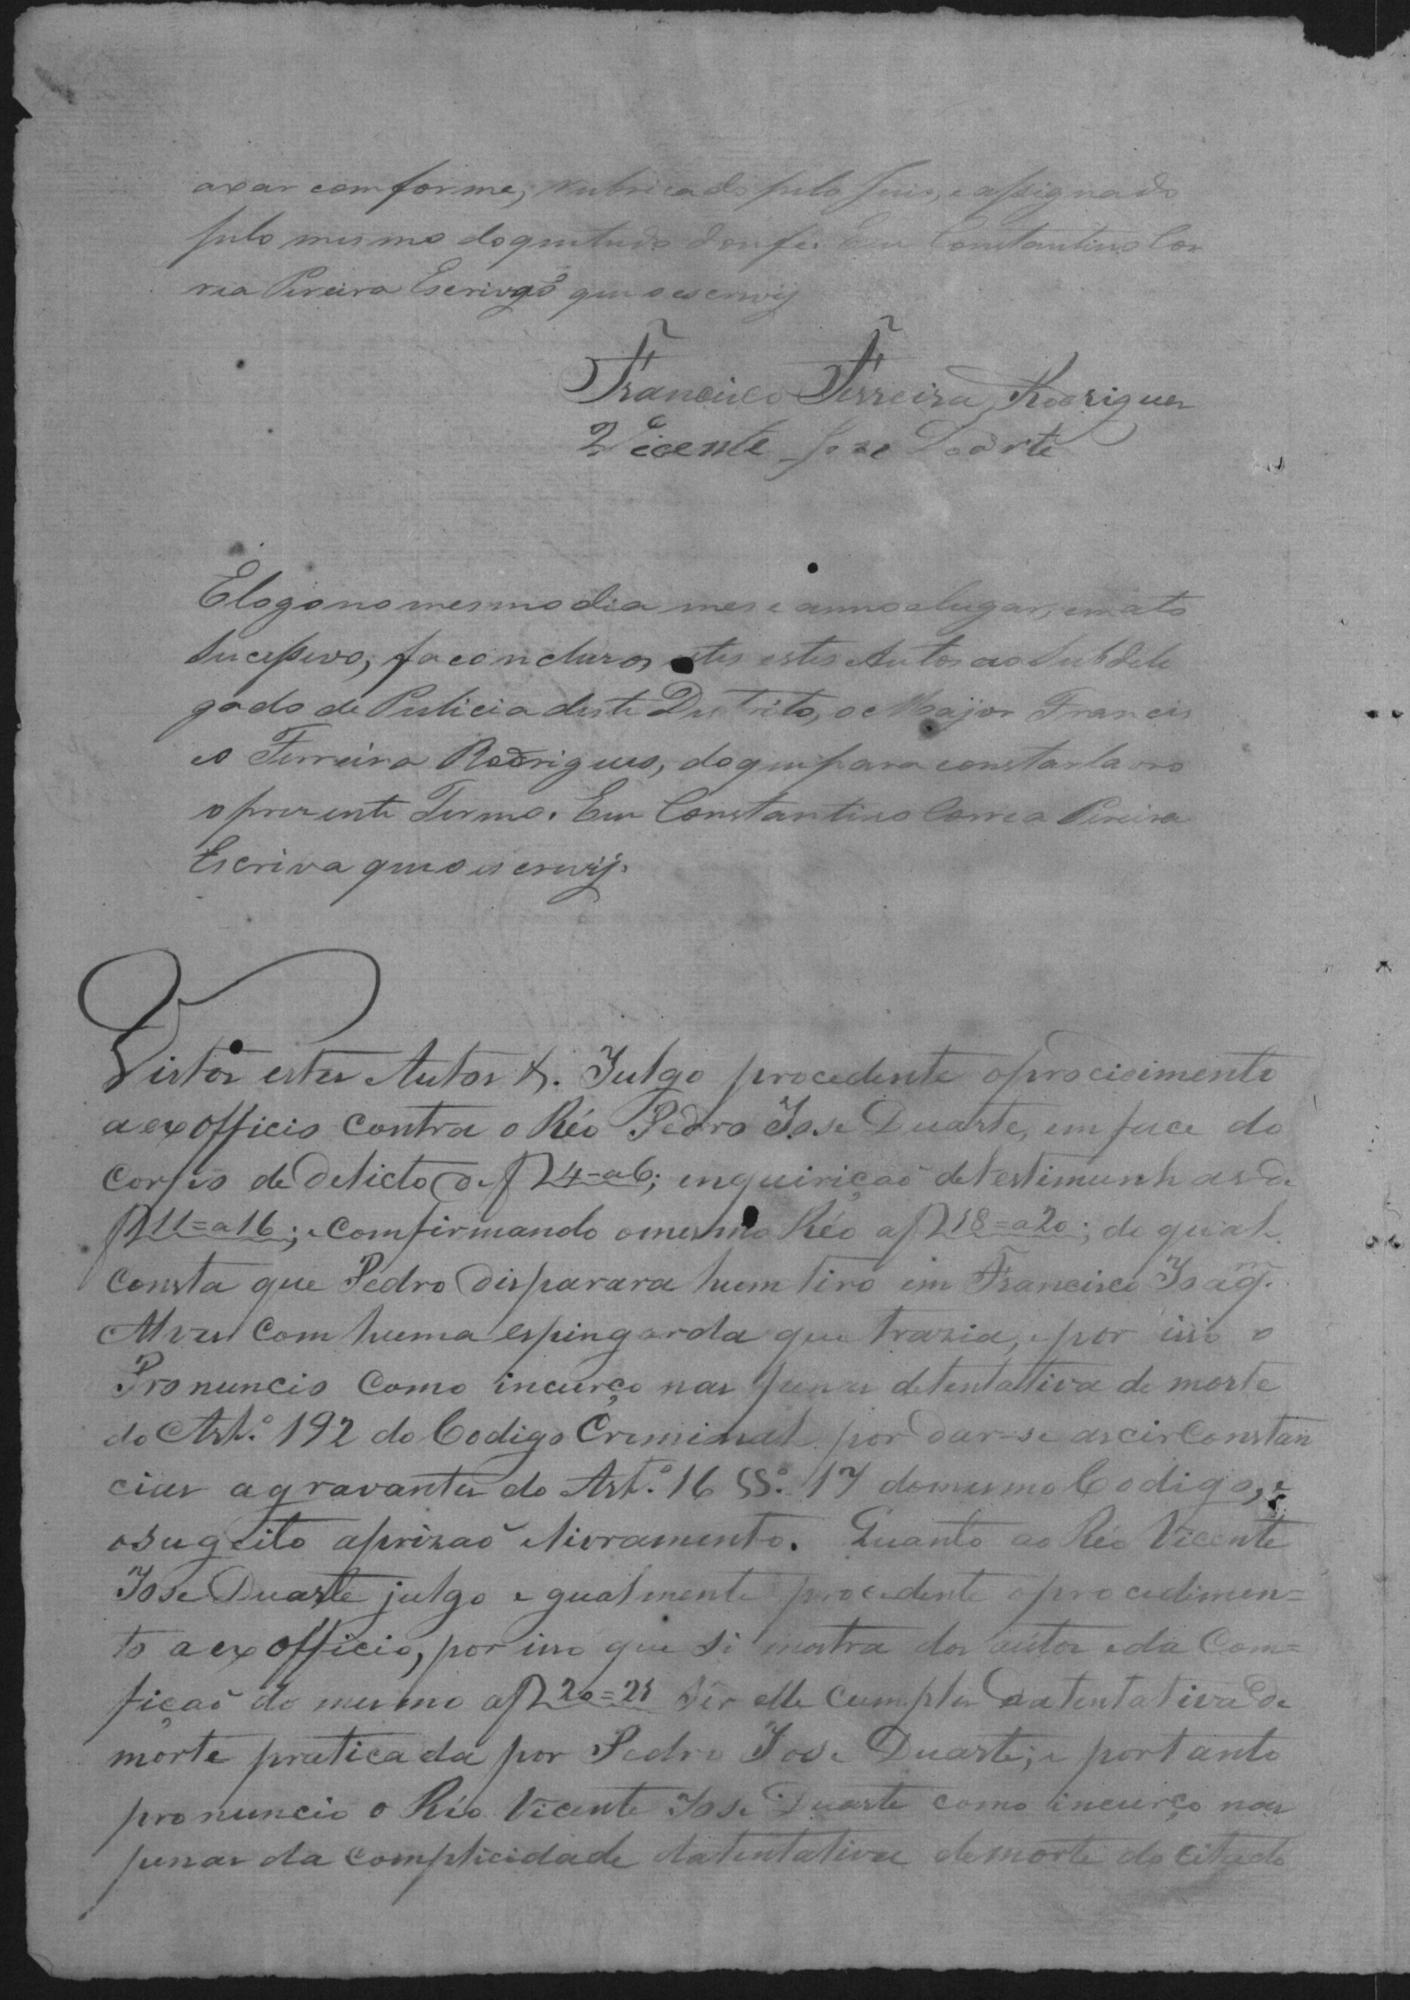 axar comforme, rubricado pelo Juis, e assignado
pelo mesmo do que tudo dou fé. Eu Constantino Cor
rea Pereira Escrivaõ que o escrevij
Francisco Ferreira Rodrigues
Vicente Jose Doarte
E logo no mesmo dia mes e anno e lugar, em ato
sucessivo, faco incluzos estes Autos ao Subdele
gado de Pulicia deste Destrito, o Major Francis
co Ferreira Rodrigues, do que para constar lavro
o prezente Termo. Eu Constantino Correa Pereira
Escriva que o escrevij.
Vistos estes Autos &. Julgo procedente o procicimento
a exofficio contra o Réo Pedro Jose Duarte, em face do
corpo de delicto de f 4=a6; enquiriçaõ de testimunhas de
f 11=a16; e comfirmando o mesmo Réo a f 18=a20; do qual
consta que Pedro disparara hum tiro em Francisco Joaqm.
Alves com huma espingarda que trazia, e por isso o
Pronuncio como incurço nas penas detentativa de morte
do Art.º 192 do Codigo Creminal por dar-se as circonstan
cias agravantes do Art.º 16 §§.º 17 do mesmo Codigo, e
o sugeito a prizaõ e livramento. Quanto ao Réo Vicente
Jose Duarte julgo egualmente procedente o procedimen=
to a exofficio, por isso que se mostra dos autos e da Com=
fiçaõ do mesmo a f 20=21 ser elle cumplis da tentativa de
morte praticada por Pedro Jose Duarte; e portanto
pronuncio o Réo Vicente Jose Duarte como incurço nas
penas da complicidade da tentativa de morte do citado